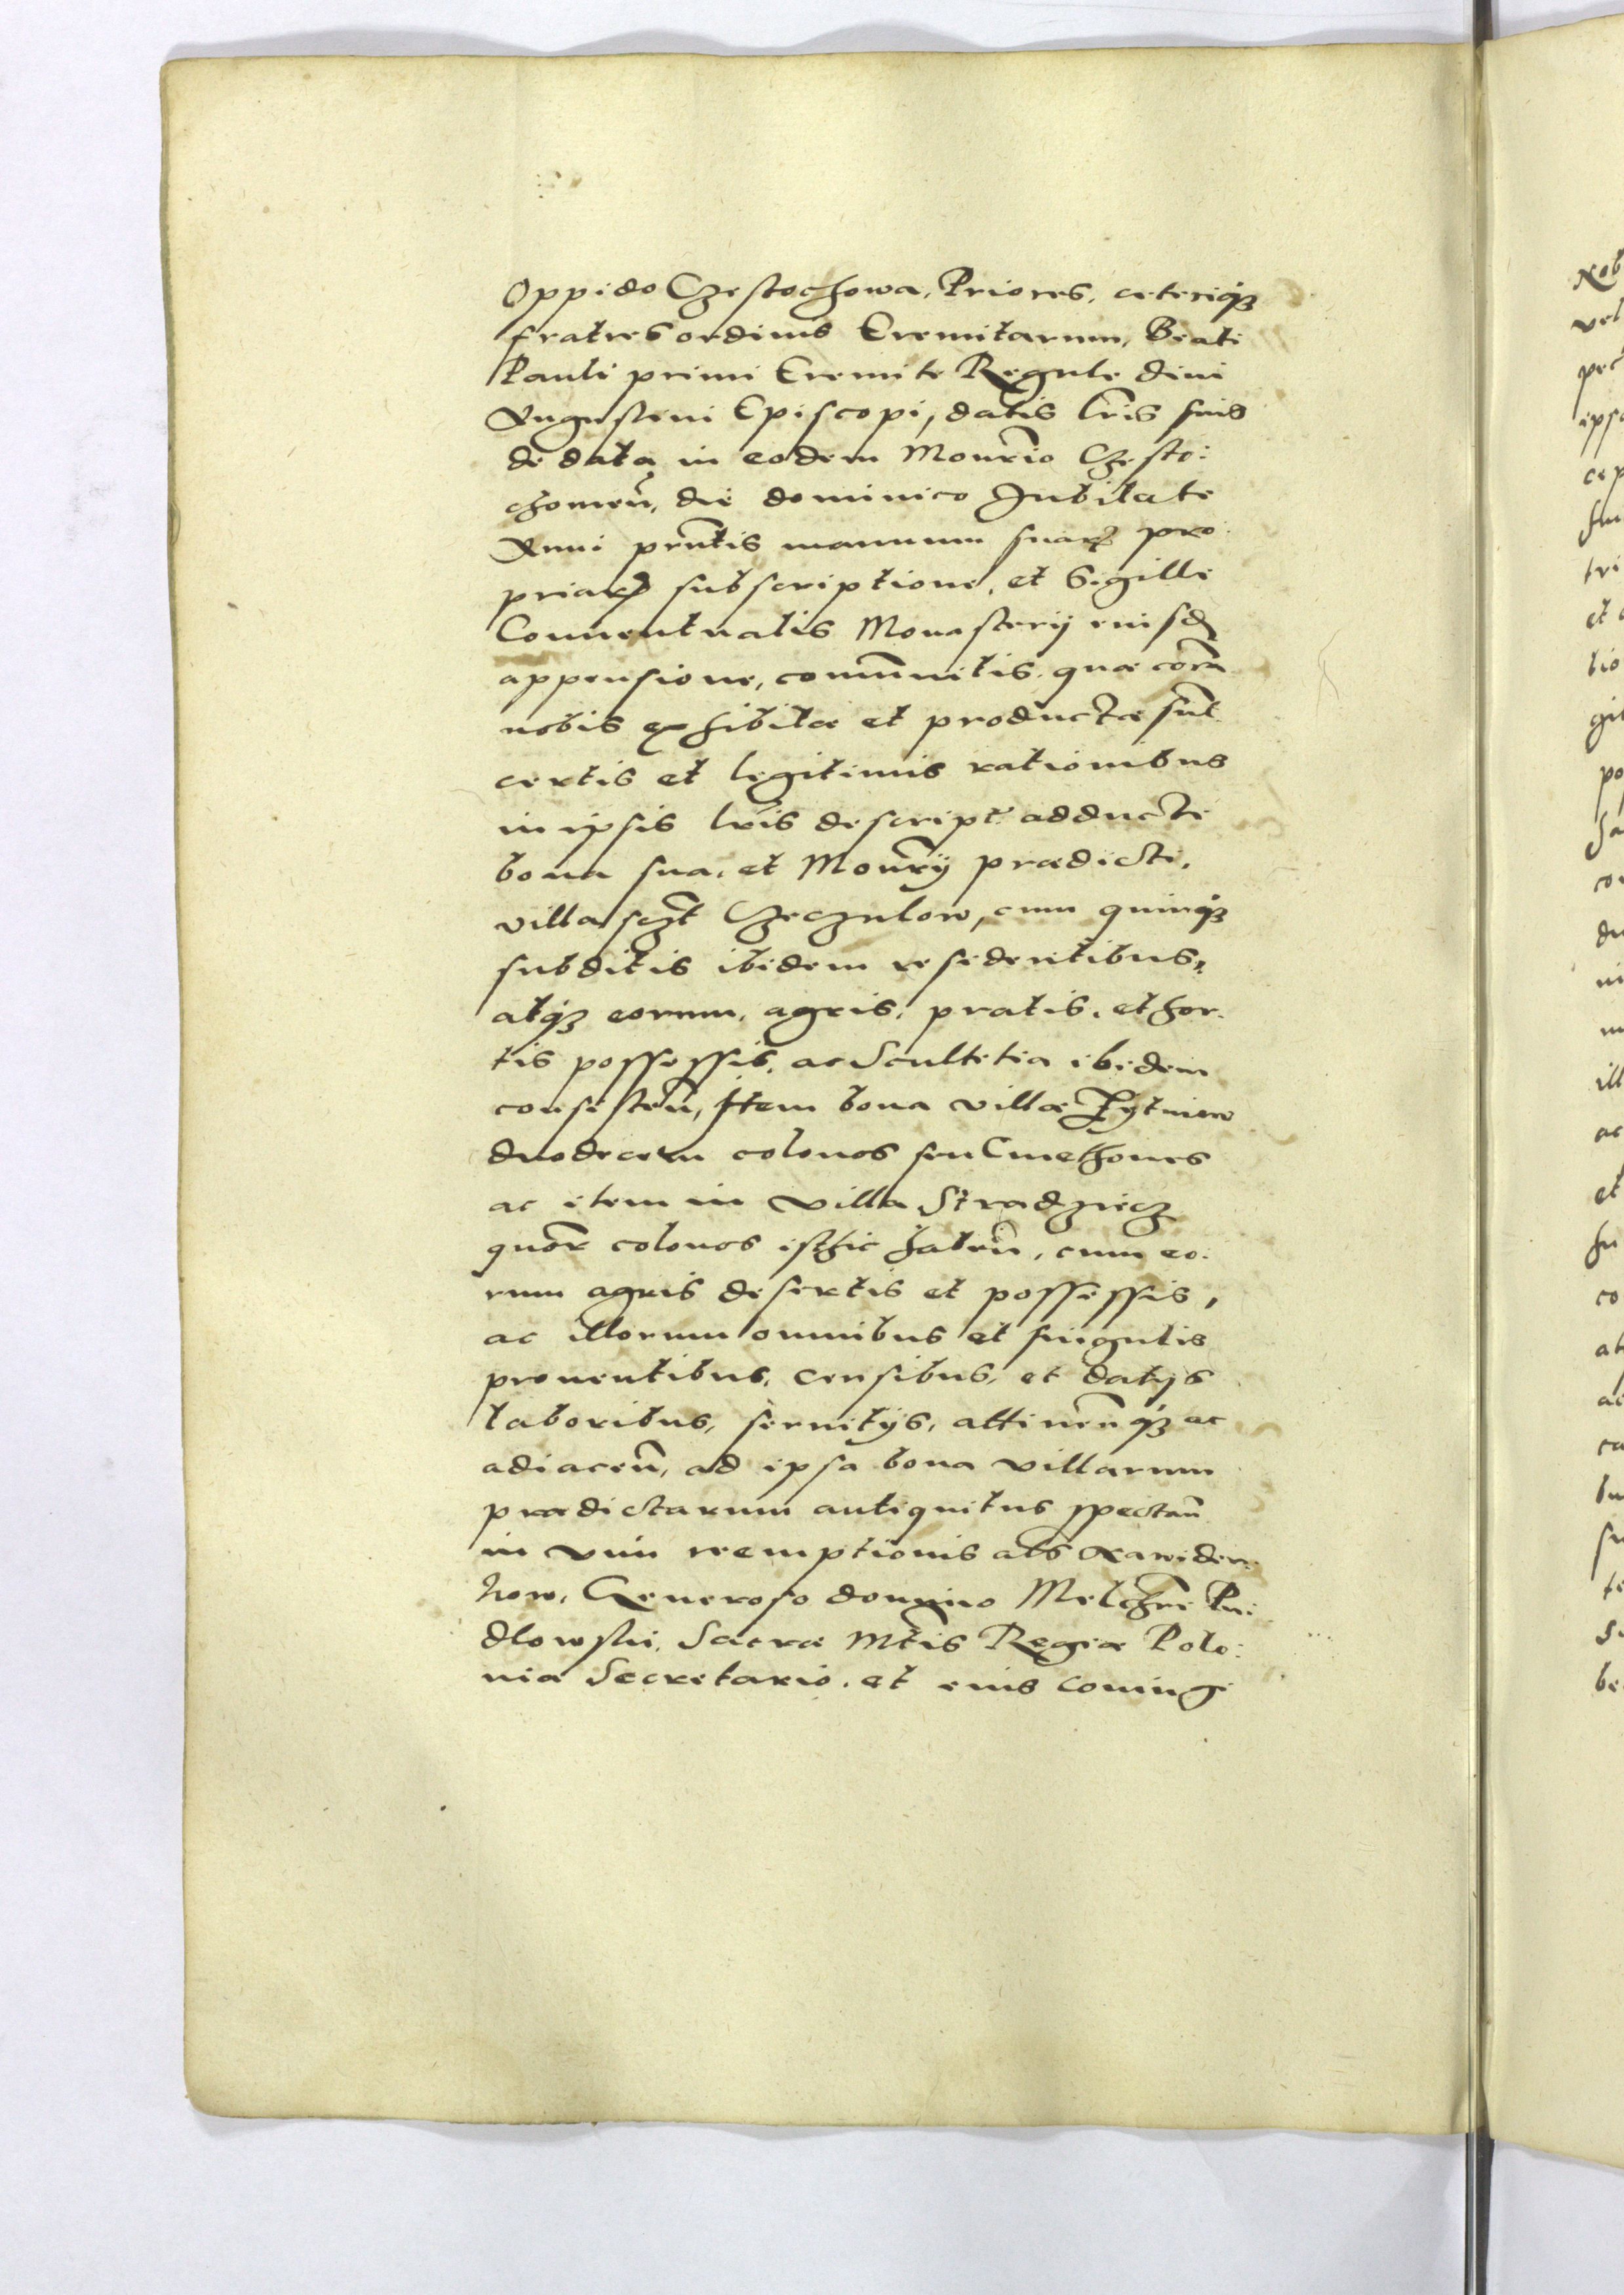 Oppido Czestochowa, Priores, ceteriqȝ
fratres ordinis Eremitarum, Beati
Pauli primi Eremite Regule diui
Augustini Episcopi, datis l̃ris suis
de data in eodem Monr̃io Czesto:
chouieñ, die dominico Jubilate
Anni pr̃ntis manuum suarꝝ pro:
priarꝝ subscriptione, et Sigilli
Conuentualis Monasterij eiusd̃
appensione, com̃unitis, quæ cora̅
nobis exhibitæ et productæ sunt̃
certis et legitimis rationibus
in ipsis l̃ris descript̃ adducti
bona sua, et Monr̃ij prædicti,
villa sczt̃ Czeczulow, cum quinqȝ
subditis ibidem residentibus,
atqȝ eorum, agris, pratis, et hor:
tis possessis, ac Scultetia ibidem
consisteñ, Item bona villæ Zytniow
duodecem colonos seu Cmethones
ac item in villa Stradziecz
quor̃ colonos isthic habeñ, cum eo:
rum agris desertis et possessis,
ac illorum omnibus et singulis
prouentibus, censibus, et datijs
laboribus, seruitijs, attineñqȝ ac
adiaceñ, ad ipsa bona villarum
prædictarum antiquitus spectañ
in vim reemptionis als Nawider:
kow, Generoso domino Melchr̃i Pu:
dlowski, Sacræ Mt̃is Regiæ Polo:
niæ Secretario, et eius coniugi